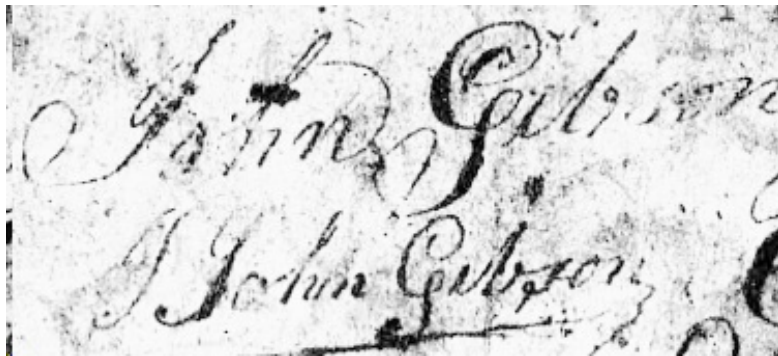 John Gibson
J John Gibson